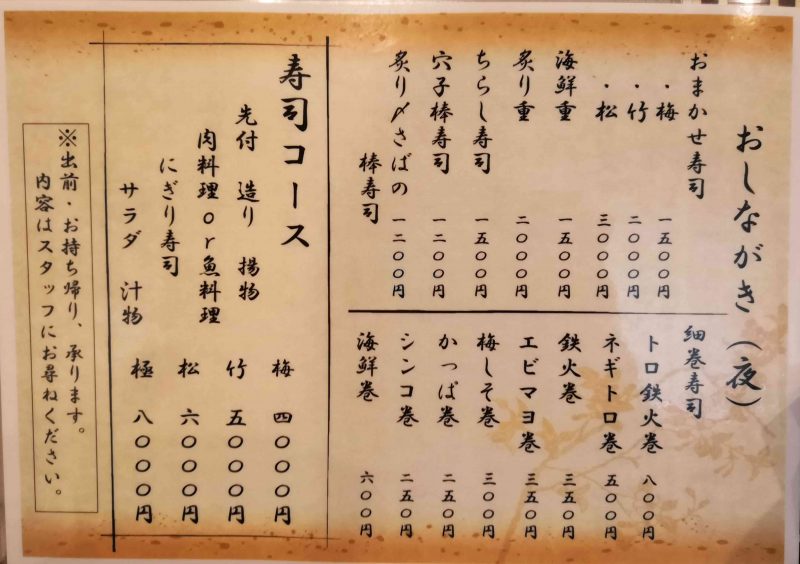 おしながき(夜)
おまかせ寿司
・梅 一五〇〇円
・竹 二〇〇〇円
・松 三〇〇〇円
海鮮重 一五〇〇円
炙り重 二〇〇〇円
ちらし寿司 一五〇〇円
穴子棒寿司 一二〇〇円
炙り〆さばの
棒寿司 一二〇〇円
細巻寿司
トロ鉄火巻 八〇〇円
ネギトロ巻 五〇〇円
鉄火巻 三五〇円
エビマヨ巻 三五〇円
梅しそ巻 三〇〇円
かっぱ巻 二五〇円
シンコ巻 二五〇円
海鮮巻 六〇〇円
寿司コース
先付 造り 揚物
肉料理or魚料理
にぎり寿司
サラダ 汁物
梅 四〇〇〇円
竹 五〇〇〇円
松 六〇〇〇円
極 八〇〇〇円
※出前・お持ち帰り、承ります。
内容はスタッフにお尋ねください。